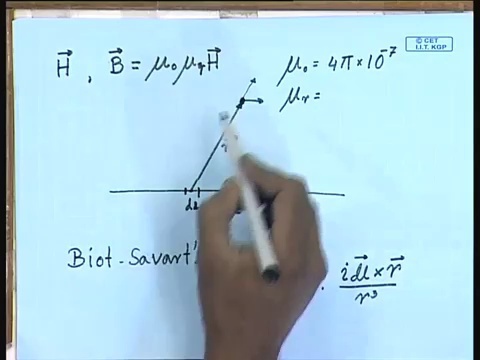 © CET
I.I.T. KGP
H⃗ , B⃗ = μ₀ μᵣ H⃗
μ₀ = 4π × 10⁻⁷
μᵣ =
dl
Biot-Savart'
i dl⃗ × r⃗
r³